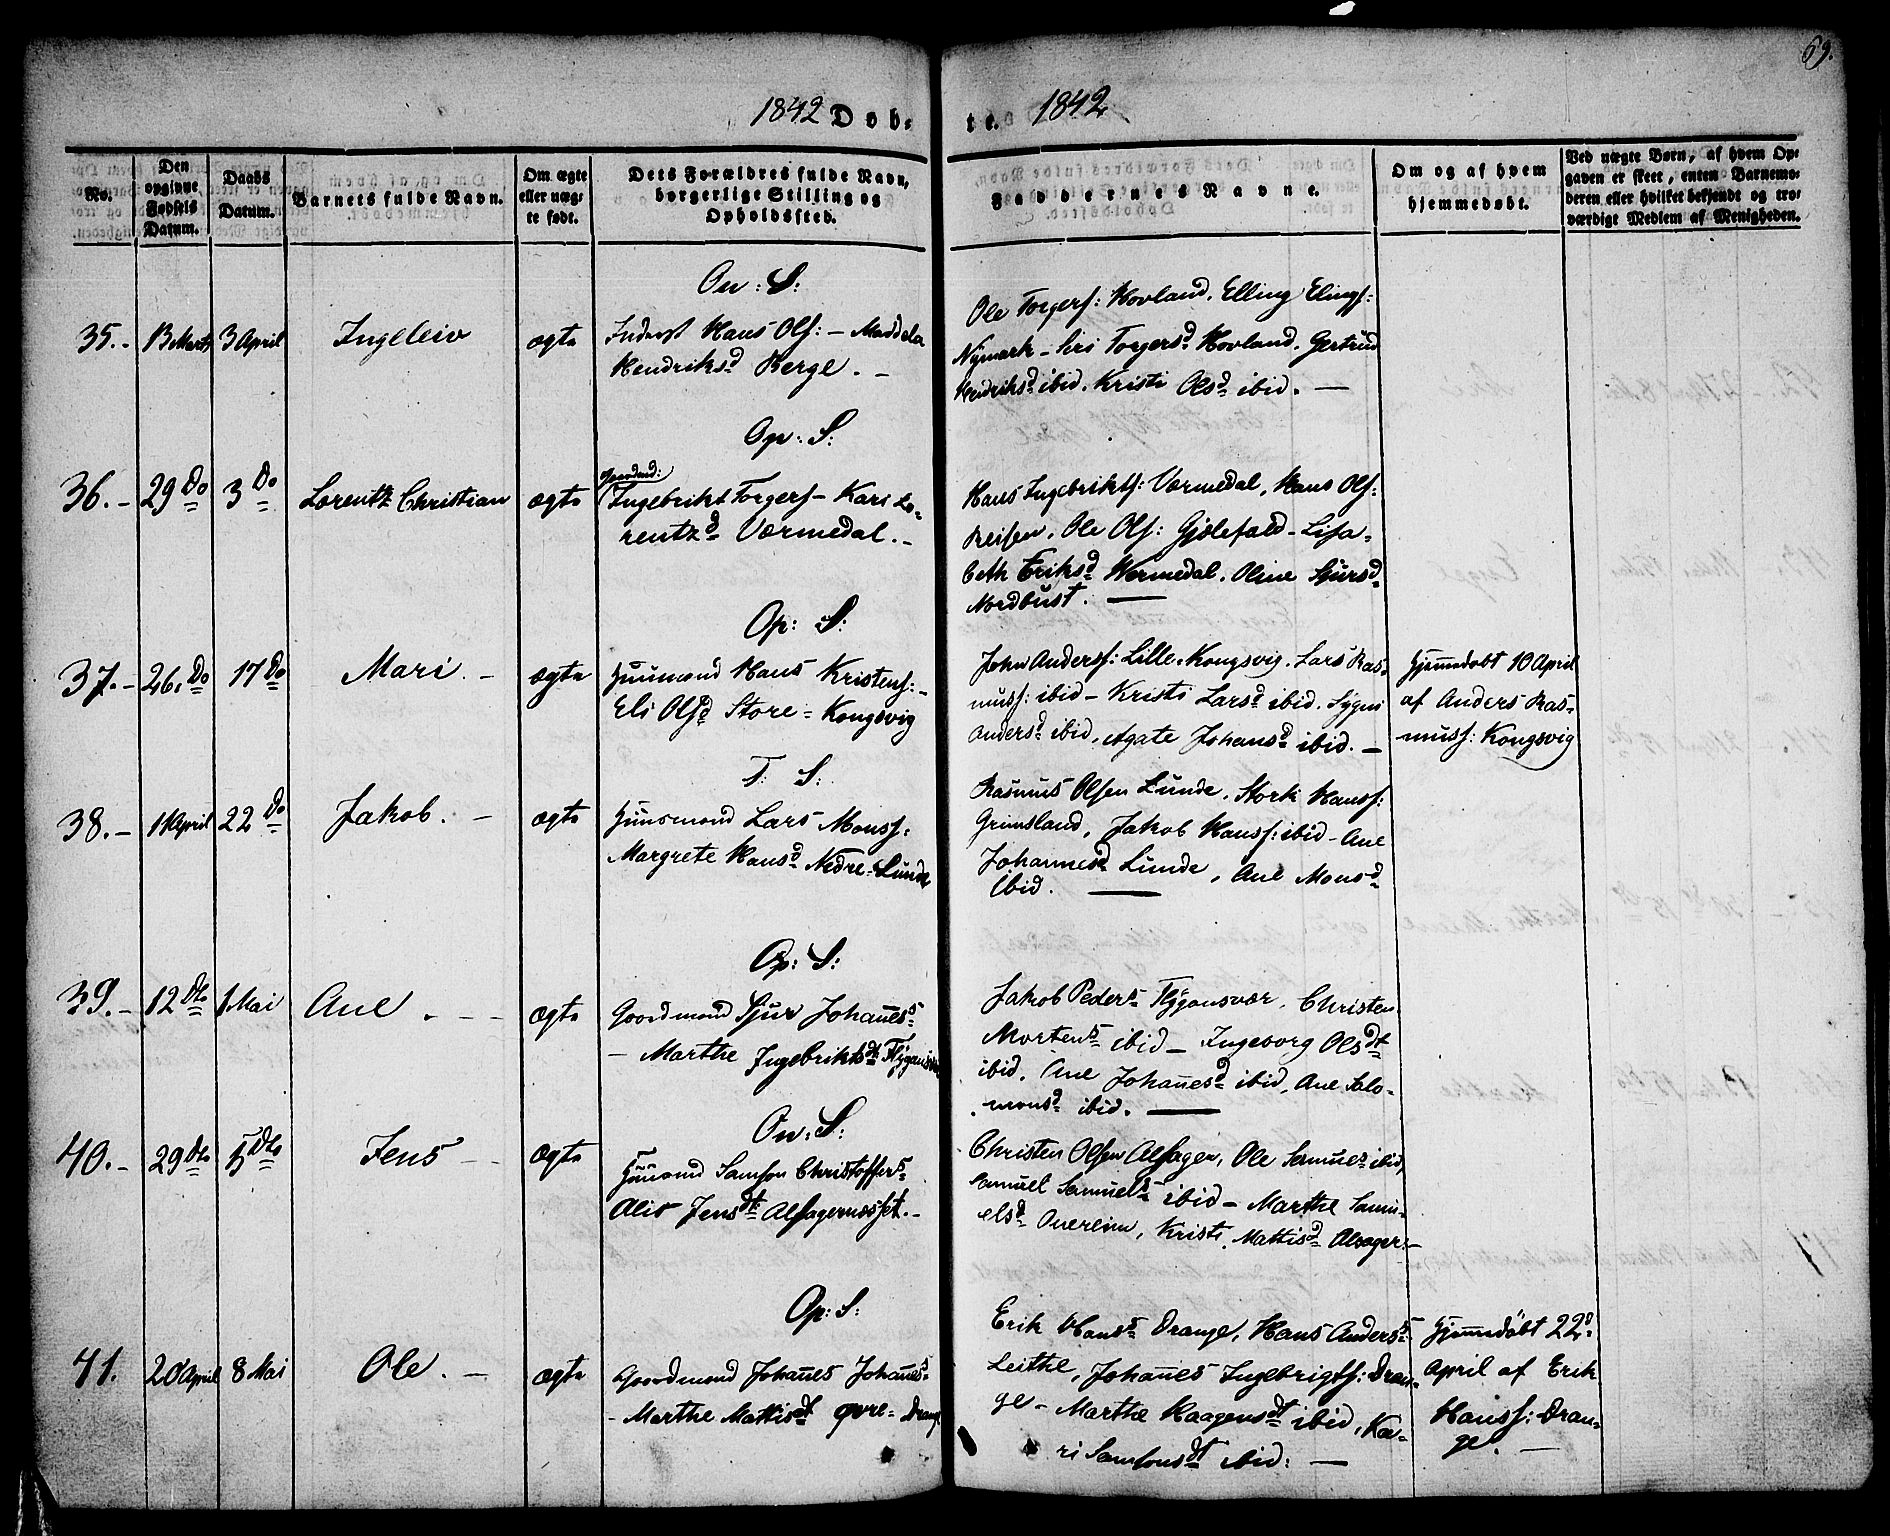 69.
1842 Døb-
te. 1842
No.
Den opgivne Fødsels Datum.
Daabs Datum.
Barnets fulde Navn.
Om ægte eller uægte født.
Dets Forældres fulde Navn, borgerlige Stilling og Opholdssted.
Faddernes Navne.
Om og af hvem hjemmedøbt.
Ved uægte Børn, af hvem Opgaven er skeet, enten Barnemoderen eller hvilket bekjendt og troværdigt Medlem af Menigheden.
On: S:
35. - 13 Marts 3 April Ingeleiv ægte
Inderst Hans Ols: - Maddela
Hendriksd Berge. -
Ole Torgers: Hovland, Elling Elings:
Nymark - Siri Torgersd Hovland, Gertrud
Hendriksd ibid, Kristi Olsd ibid. -
Op: S:
36. - 29 Do 3 Do Lorentz Christian ægte
Ingebrikt Torgers - Kari Lo-
rentzd Værmedal. -
Hans Ingebrikts: Værmedal, Hans Ols:
Reisen, Ole Ols: Gjølefald - Lisa-
beth Eriksd Wermedal, Oline Sjursd
Nordbust. -
Op: S:
37. - 26. Do 17 Do Mari. - ægte
Huusmand Hans Kristens: -
Eli Olsd Store-Kongsvig
John Anders: Lille-Kongsvig, Lars Ras-
muss: ibid - Kristi Larsd ibid, Sygni
Andersd ibid, Agate Johansd ibid. -
Hjemmedøbt 10 April
af Anders Ras-
muss: Kongsvig
T: S:
38. - 1 April 22 Do Jakob. - ægte
Huusmand Lars Monss:
Margrete Hansd Nedre-Lunde
Rasmus Olsen Lunde, Stork Hanss:
Grimsland, Jakob Hanss: ibid - Ane
Johannesd Lunde, Ane Monsd
ibid. -
Op: S:
39. - 12 Dto 1 Mai Ane. - - ægte
Gaardmand Sjur Johañess
- Marthe Ingebriktsdt Flygansvær
Jakob Peders Flygansvær, Christen
Mortens ibid - Ingeborg Olsdt
ibid, Ane Johañesd ibid, Ane Salo-
monsd ibid. -
On: S:
40. - 29 Dto 5 Dto Jens - ægte
Huusmand Samson Christoffers
Alis Jensdt Alsagernesset. -
Christen Olsen Alsager, Ole Samuels ibid,
Samuel Samuels ibid - Marthe Samu-
elsd Quereim, Kristi Mattisd Alsager: -
Op: S:
41. 20 April 8 Mai Ole. - ægte
Gaardmand Johañes Johañes-
- Marthe Mattisdt Øvre-Drange
Erik Hans Drange, Hans Anders
Leithe, Johañes Ingebrigts: Dran-
ge - Marthe Haagensdt ibid, Ka-
ri Samsonsdt ibid: -
Hjemmedøbt 22d
April af Erik
Hanss: Dran-
ge. -